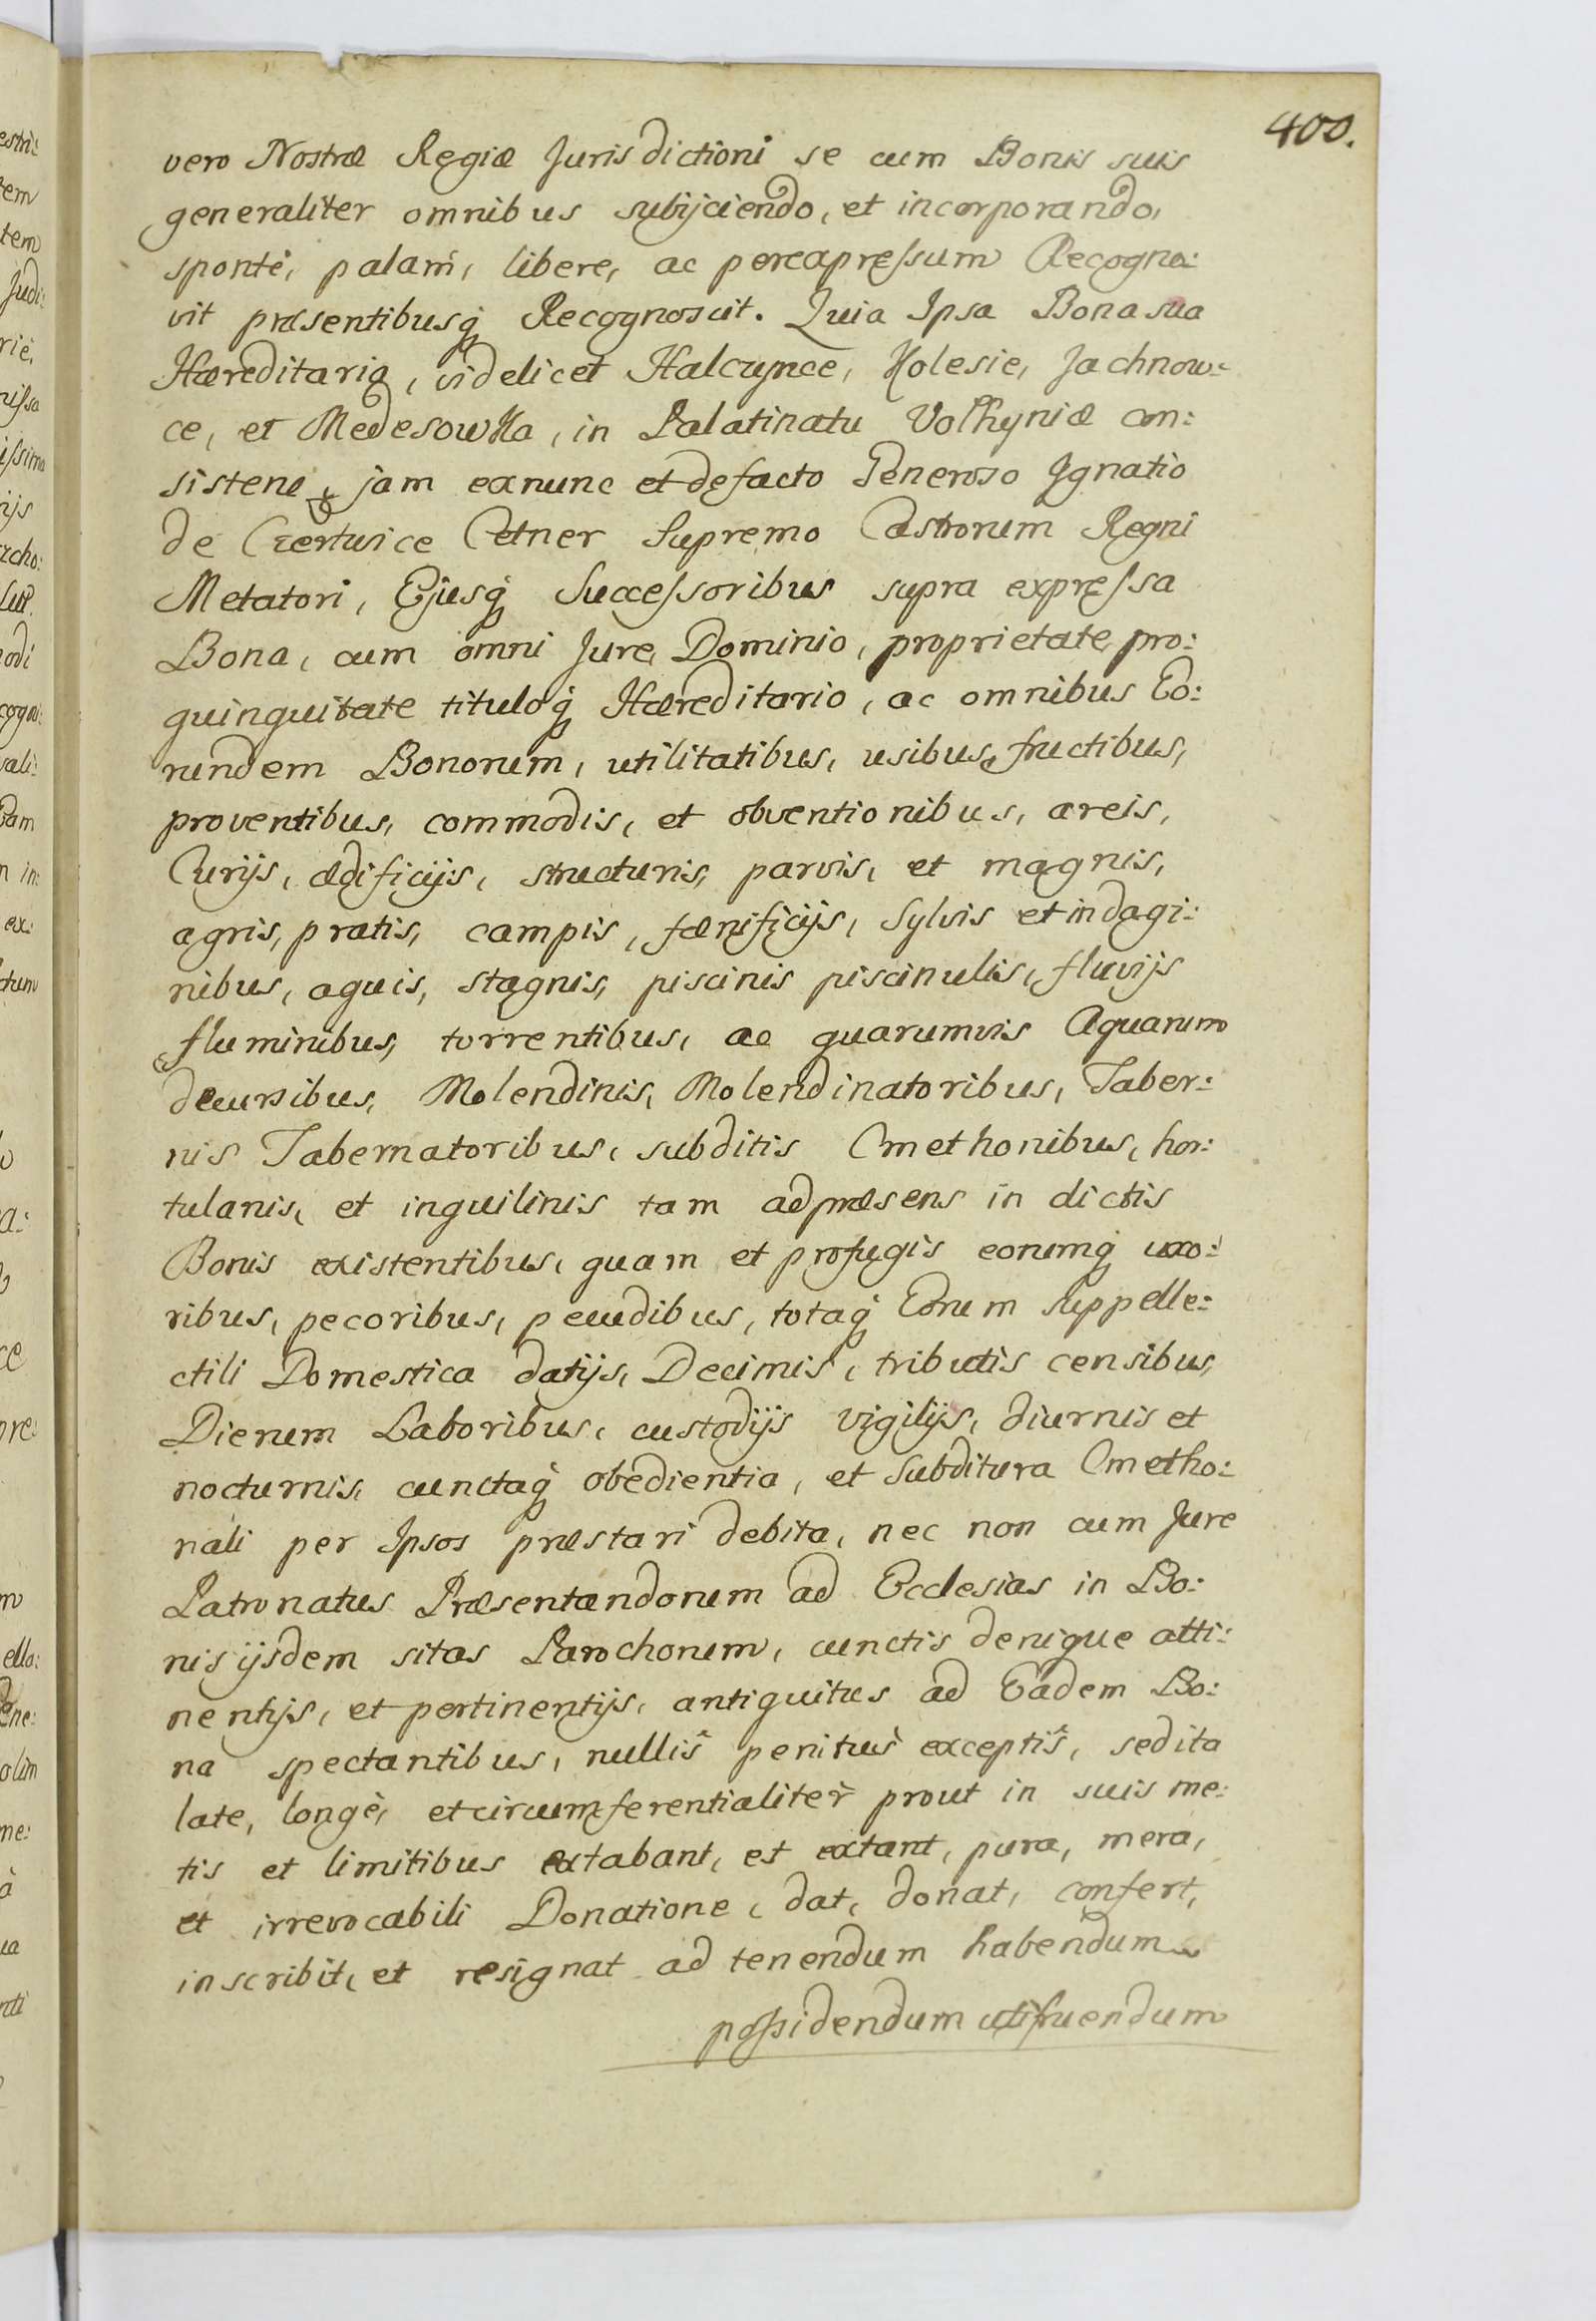 400.
vero Nostræ Regiæ Jurisdictioni se cum Bonis suis
generaliter omnibus subijciendo, et incorporando,
sponte, palam, libere, ac perexpressum Recogno:
vit præsentibusq Recognoscit. Quia Ipsa Bona sua
Hæreditaria, videlicet Halczynce, Holesie, Jachnow:
ce, et Medesowka, in Palatinatu Volhyniæ con:
sisten jam exnunc et defacto Generoso Ignatio
de Czertwice Cetner Supremo Castrorum Regni
Metatori, Ejusq Successoribus supra expressa
Bona, cum omni Jure, Dominio, proprietate, pro:
quinquitate tituloq Hæreditario, ac omnibus Eo:
rundem Bonorum, utilitatibus, usibus, fructibus,
proventibus, commodis, et obventionibus, areis,
Curijs, ædificijs, structuris, parvis, et magnis,
agris, pratis, campis, fænificijs, Sylvis et indagi:
nibus, aquis, stagnis, piscinis piscinulis, fluvijs
fluminibus, torrentibus, ac quarumvis Aquarum
decursibus, Molendinis, Molendinatoribus, Taber:
nis Tabernatoribus, subditis Cmethonibus, hor:
tulanis, et inquilinis tam adpræsens in dictis
Bonis existentibus, quam et profugis eorumq uxo:
ribus, pecoribus, pecudibus, totaq Eorum suppelle:
ctili Domestica datijs, Decimis, tributis censibus,
Dierum Laboribus, custodijs vigilijs, diurnis et
nocturnis, cunctaq obedientia, et Subditura Cmetho:
nali per Ipsos præstari debita, nec non cum Jure
Patronatus Præsentandorum ad Ecclesias in Bo:
nis ijsdem sitas Parochorum, cunctis denique atti:
nentijs, et pertinentijs, antiquitus ad Eadem Bo:
na spectantibus, nullis penitus exceptis, sed ita
late, longè, et circumferentialiter prout in suis me:
tis et limitibus extabant, et extant, pura, mera,
et irrevocabili Donatione, dat, donat, confert,
inscribit, et resignat ad tenendum habendum
possidendum utifruendum